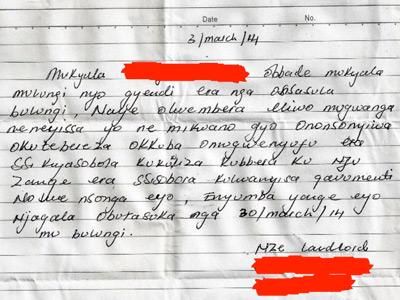 Date No.
3/march/14
Mukyala obbade mukyala
mulungi nyo gyendi era nga obasasula
bulungi, Naye olwembera eliwo mugwanga
neneyissa yo ne mikwano gyo ononsonyiwa
okutebereza okkuba omugwenyufu era
SSikyasobola kukikiliza kubbera ku Nju
Zange era SSisobola kulwanyisa gavumenti
Nolwe nsonga eyo, Enyumba yange eyo
Njagala Obutasuka nga 30/march/14
mu bulungi.
Nze Landlord